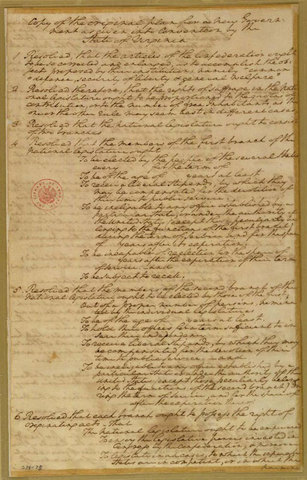 Copy of the original plan for a new Govern-
ment as given into convention by the
State of
1 Resolved, that the articles of the Confederation ought
to be so corrected and enlarged, as to accomplish the ob-
jects proposed by their institution; namely "common
"defence, security of liberty & general welfare"
2 Resolved therefore, that the rights of suffrage in the Nat-
ional Legislature ought to be proportioned to the quotas of
contribution, or to the number of free Inhabitants as the
one or other rule may seem best in different cases
3 Resolved that the national legislature ought to consist
of two branches
4 Resolved that the members of the first branch of the
national legislature ought
To be elected by the people of the several States
every for the term of
To be of the age of years at least
To receive liberal stipends, by which they
may be compensated for the devotion of
their time to public service
To be ineligible to any office established by a
particular state, or under the authority of
the United States, except those
belonging to the functions of the first branch
during the term of service, and for the space
of years after its expiration;
To be incapable of reelection for the space of
years after the expiration of their term
of service, and
To be subject to recall
5 Resolved that the members of the second branch of the
National Legislature ought to be elected by those of the first
out of a proper number of persons nomina-
ted by the individual legislatures
To be of the age of years at least
To hold their offices for a term sufficient to en-
sure their independency
To receive liberal stipends, by which they may
be compensated for the devotion of their
time to public service, and
To be ineligible to any office established by a
particular state, or under the authority of the
united States, except those peculiarly belong-
ing to the functions of the second branch, du-
ring the term of service, and for the space of
after the expiration
6 Resolved that each branch ought to possess the right of
originating acts, that
The national legislature ought to be impowered
To enjoy the legislative powers vested in
Congress by the Confederation, &
To legislate in all cases, to which the separate
States are incompetent, or in which the